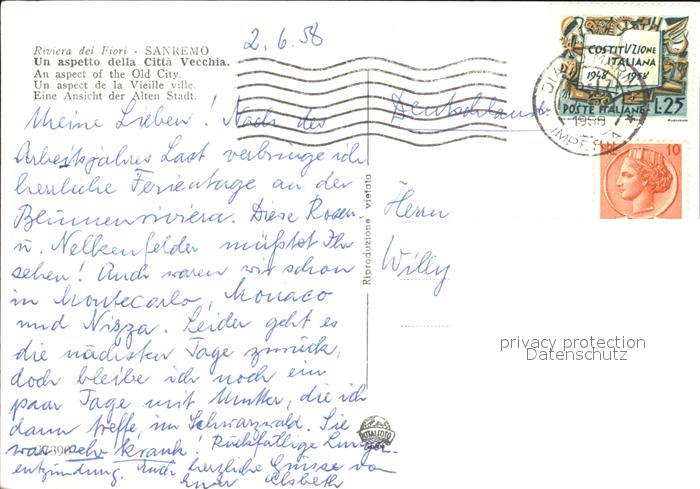 Riviera dei Fiori - SANREMO
Un aspetto della Città Vecchia.
An aspect of the Old City.
Un aspect de la Vieille ville.
Eine Ansicht der Alten Stadt.
2.6.58
Meine Lieben! Nach des
Arbeitsjahres Last verbringe ich
herrliche Ferientage an der
Blumenriviera. Diese Rosen-
u. Nelkenfelder müßtet Ihr
sehen! Auch waren wir schon
in Montecarlo, Monaco
und Nizza. Leider geht es
die nächsten Tage zurück,
doch bleibe ich noch ein
paar Tage mit Mutter, die ich
dann treffe, im Schwarzwald. Sie
war sehr krank! Rückfällige Lungen-
entzündung. Euch herzliche Grüsse von
Eurer Elsbeth
Riproduzione vietata
Deutschland
Herrn
Willy
COSTITVZIONE
ITALIANA
1948 1958
POSTE ITALIANE L.25
DIANO MARINA
1958
IMPERIA
10
ITALFOTO
privacy protection
Datenschutz